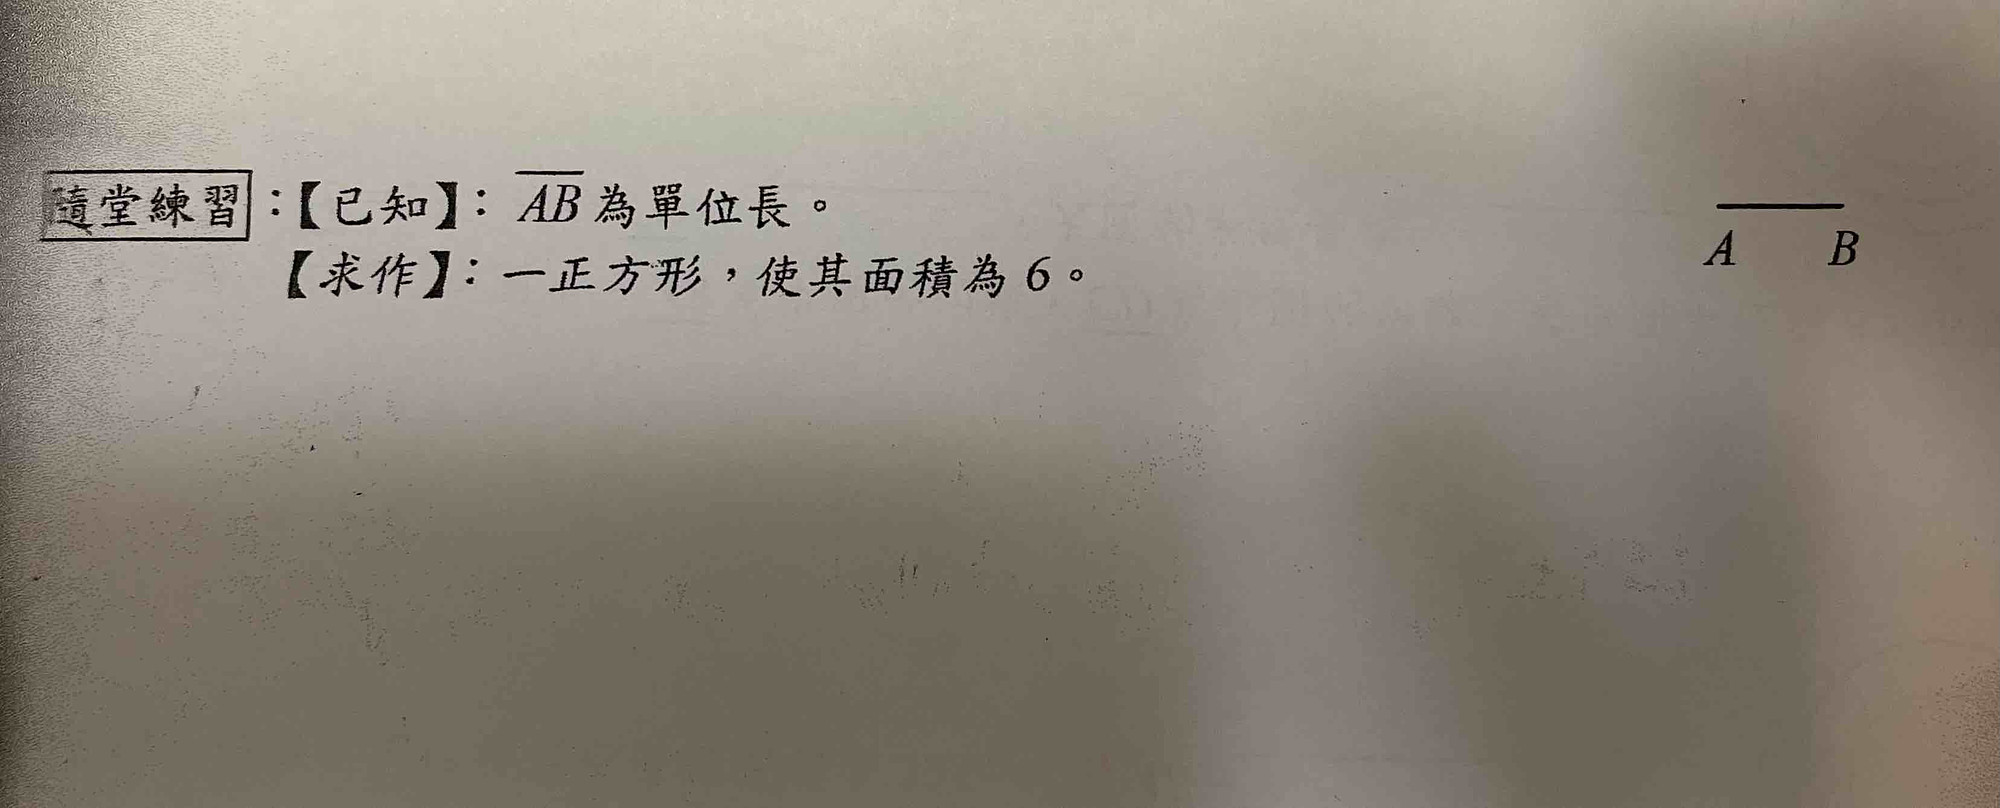 隨堂練習：【已知】：AB為單位長。
【求作】：一正方形，使其面積為6。
A B